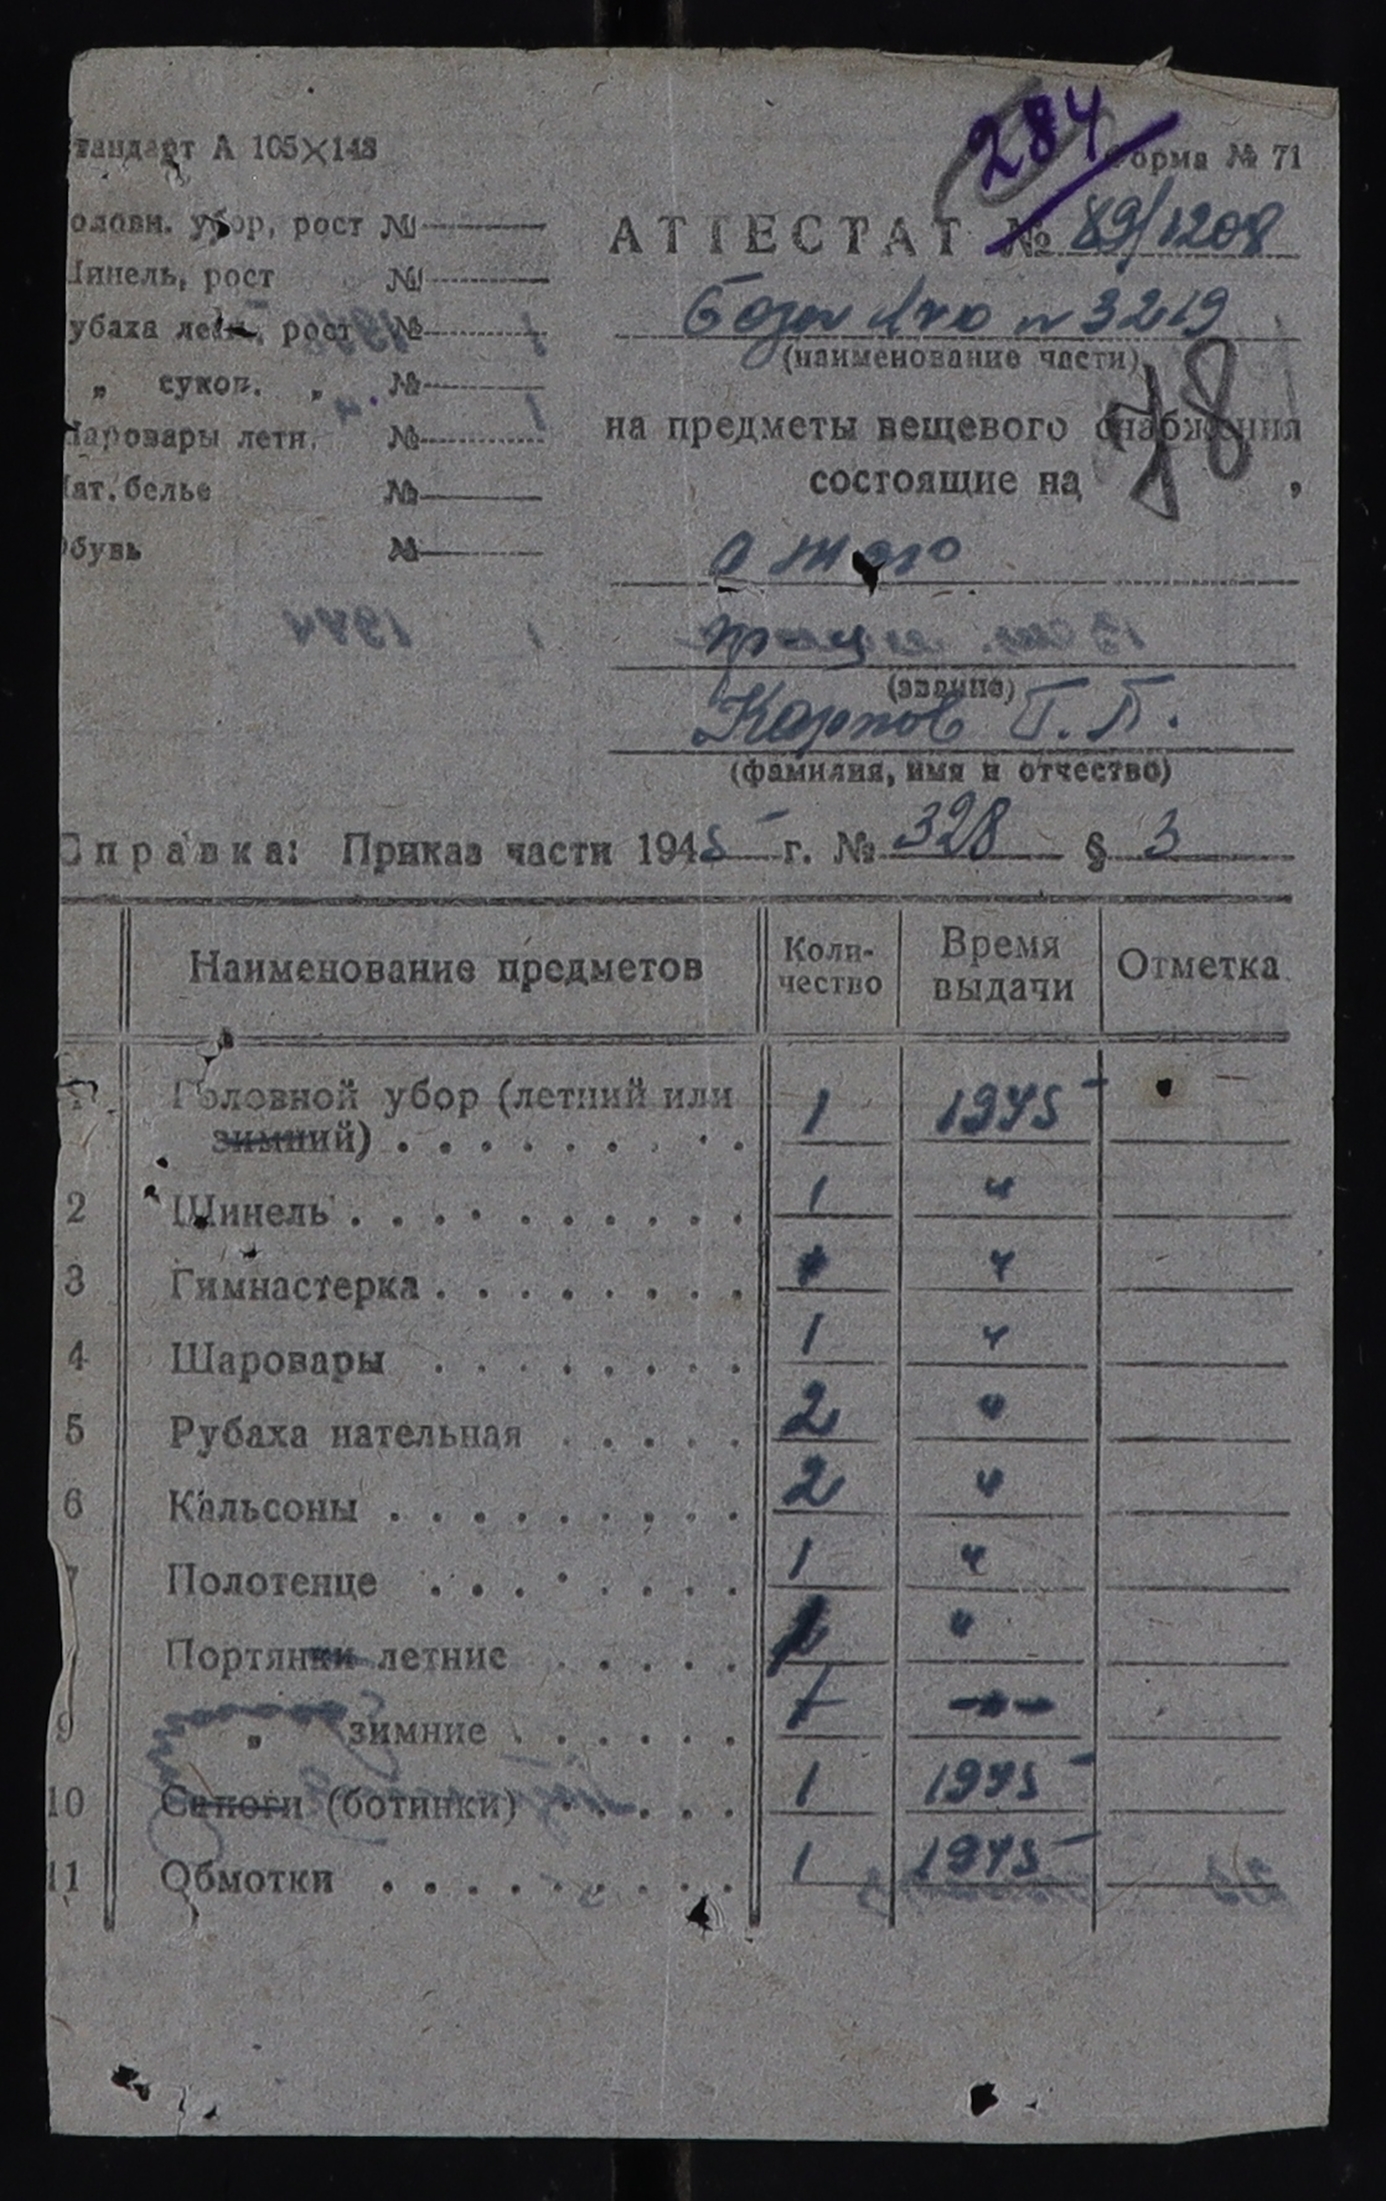 284
тандарт А 105×148
орма № 71
оловн. убор, рост №
АТТЕСТАТ № 89/1208
инель, рост №
убаха летн., рост №
№ 3219
(наименование части)
„ сукон. „ №
аровары летн. №
на предметы вещевого снабжения
78
ат. белье №
состоящие на ,
бувь №
1944
(звание)
Карпов Г. П.
(фамилия, имя и отчество)
Справка: Приказ части 1945 г. № 328 § 3
Наименование предметов Коли-чество Время выдачи Отметка
Головной убор (летний или
зимний) . . . . . . . . . 1 1945
2 Шинель . . . . . . . . . . . 1 "
3 Гимнастерка . . . . . . . . "
4 Шаровары . . . . . . . . 1 "
5 Рубаха нательная . . . . . 2 "
6 Кальсоны . . . . . . . . . 2 "
7 Полотенце . . . . . . . . 1 "
Портянки летние . . . . . "
9 „ зимние . . . . . .
10 Сапоги (ботинки) . . . . . 1 1945
11 Обмотки . . . . . . . . . 1 1945